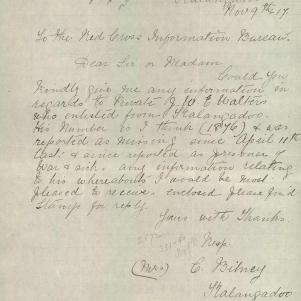 Kalangadoo
Nov 9th 17.
To the Red Cross Information Bureau.
Dear Sir or Madam
Could you
Kindly give me any information in
regards to Private J. W. E Walters
who enlisted from Kalangadoo.
His Number is I think (1876) & was
reported as missing since April 11th
last & since reported as prisoner of
War & sick. any information relating
to his whereabouts I would be most
pleased to receive. enclosed please find
stamps for reply.
Yours with Thanks.
Resp.
(Mrs) C. Bitney
Kalangadoo